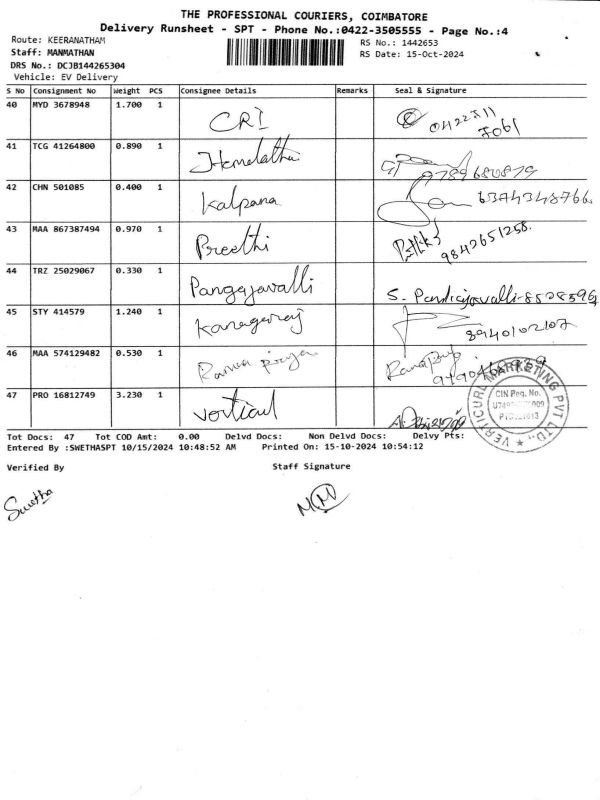 THE PROFESSIONAL COURIERS, COIMBATORE
Delivery Runsheet - SPT - Phone No.:0422-3505555 - Page No.:4
Route: KEERANATHAM
RS No.: 1442653
Staff: MANMATHAN
RS Date: 15-Oct-2024
DRS No.: DCJB144265304
Vehicle: EV Delivery
S No Consignment No Weight PCS Consignee Details Remarks Seal & Signature
40 MYD 3678948 1.700 1 CRI 0422711
7061
41 TCG 41264800 0.890 1 Hemalatha 9789680879
42 CHN 501085 0.400 1 Kalpana 6374348766
43 MAA 867387494 0.970 1 Preethi 9842651258
44 TRZ 25029067 0.330 1 Pangajavalli S. Pandiajavalli-8528596
45 STY 414579 1.240 1 Kanagaraj 8940102107
46 MAA 574129482 0.530 1 Rama priya
47 PRO 16812749 3.230 1 vortical
VERTICURL MARKETING PVT LTD.,
CIN Peg. No.
Tot Docs: 47 Tot COD Amt: 0.00 Delvd Docs: Non Delvd Docs: Delvy Pts:
Entered By :SWETHASPT 10/15/2024 10:48:52 AM Printed On: 15-10-2024 10:54:12
Verified By Staff Signature
Swetha